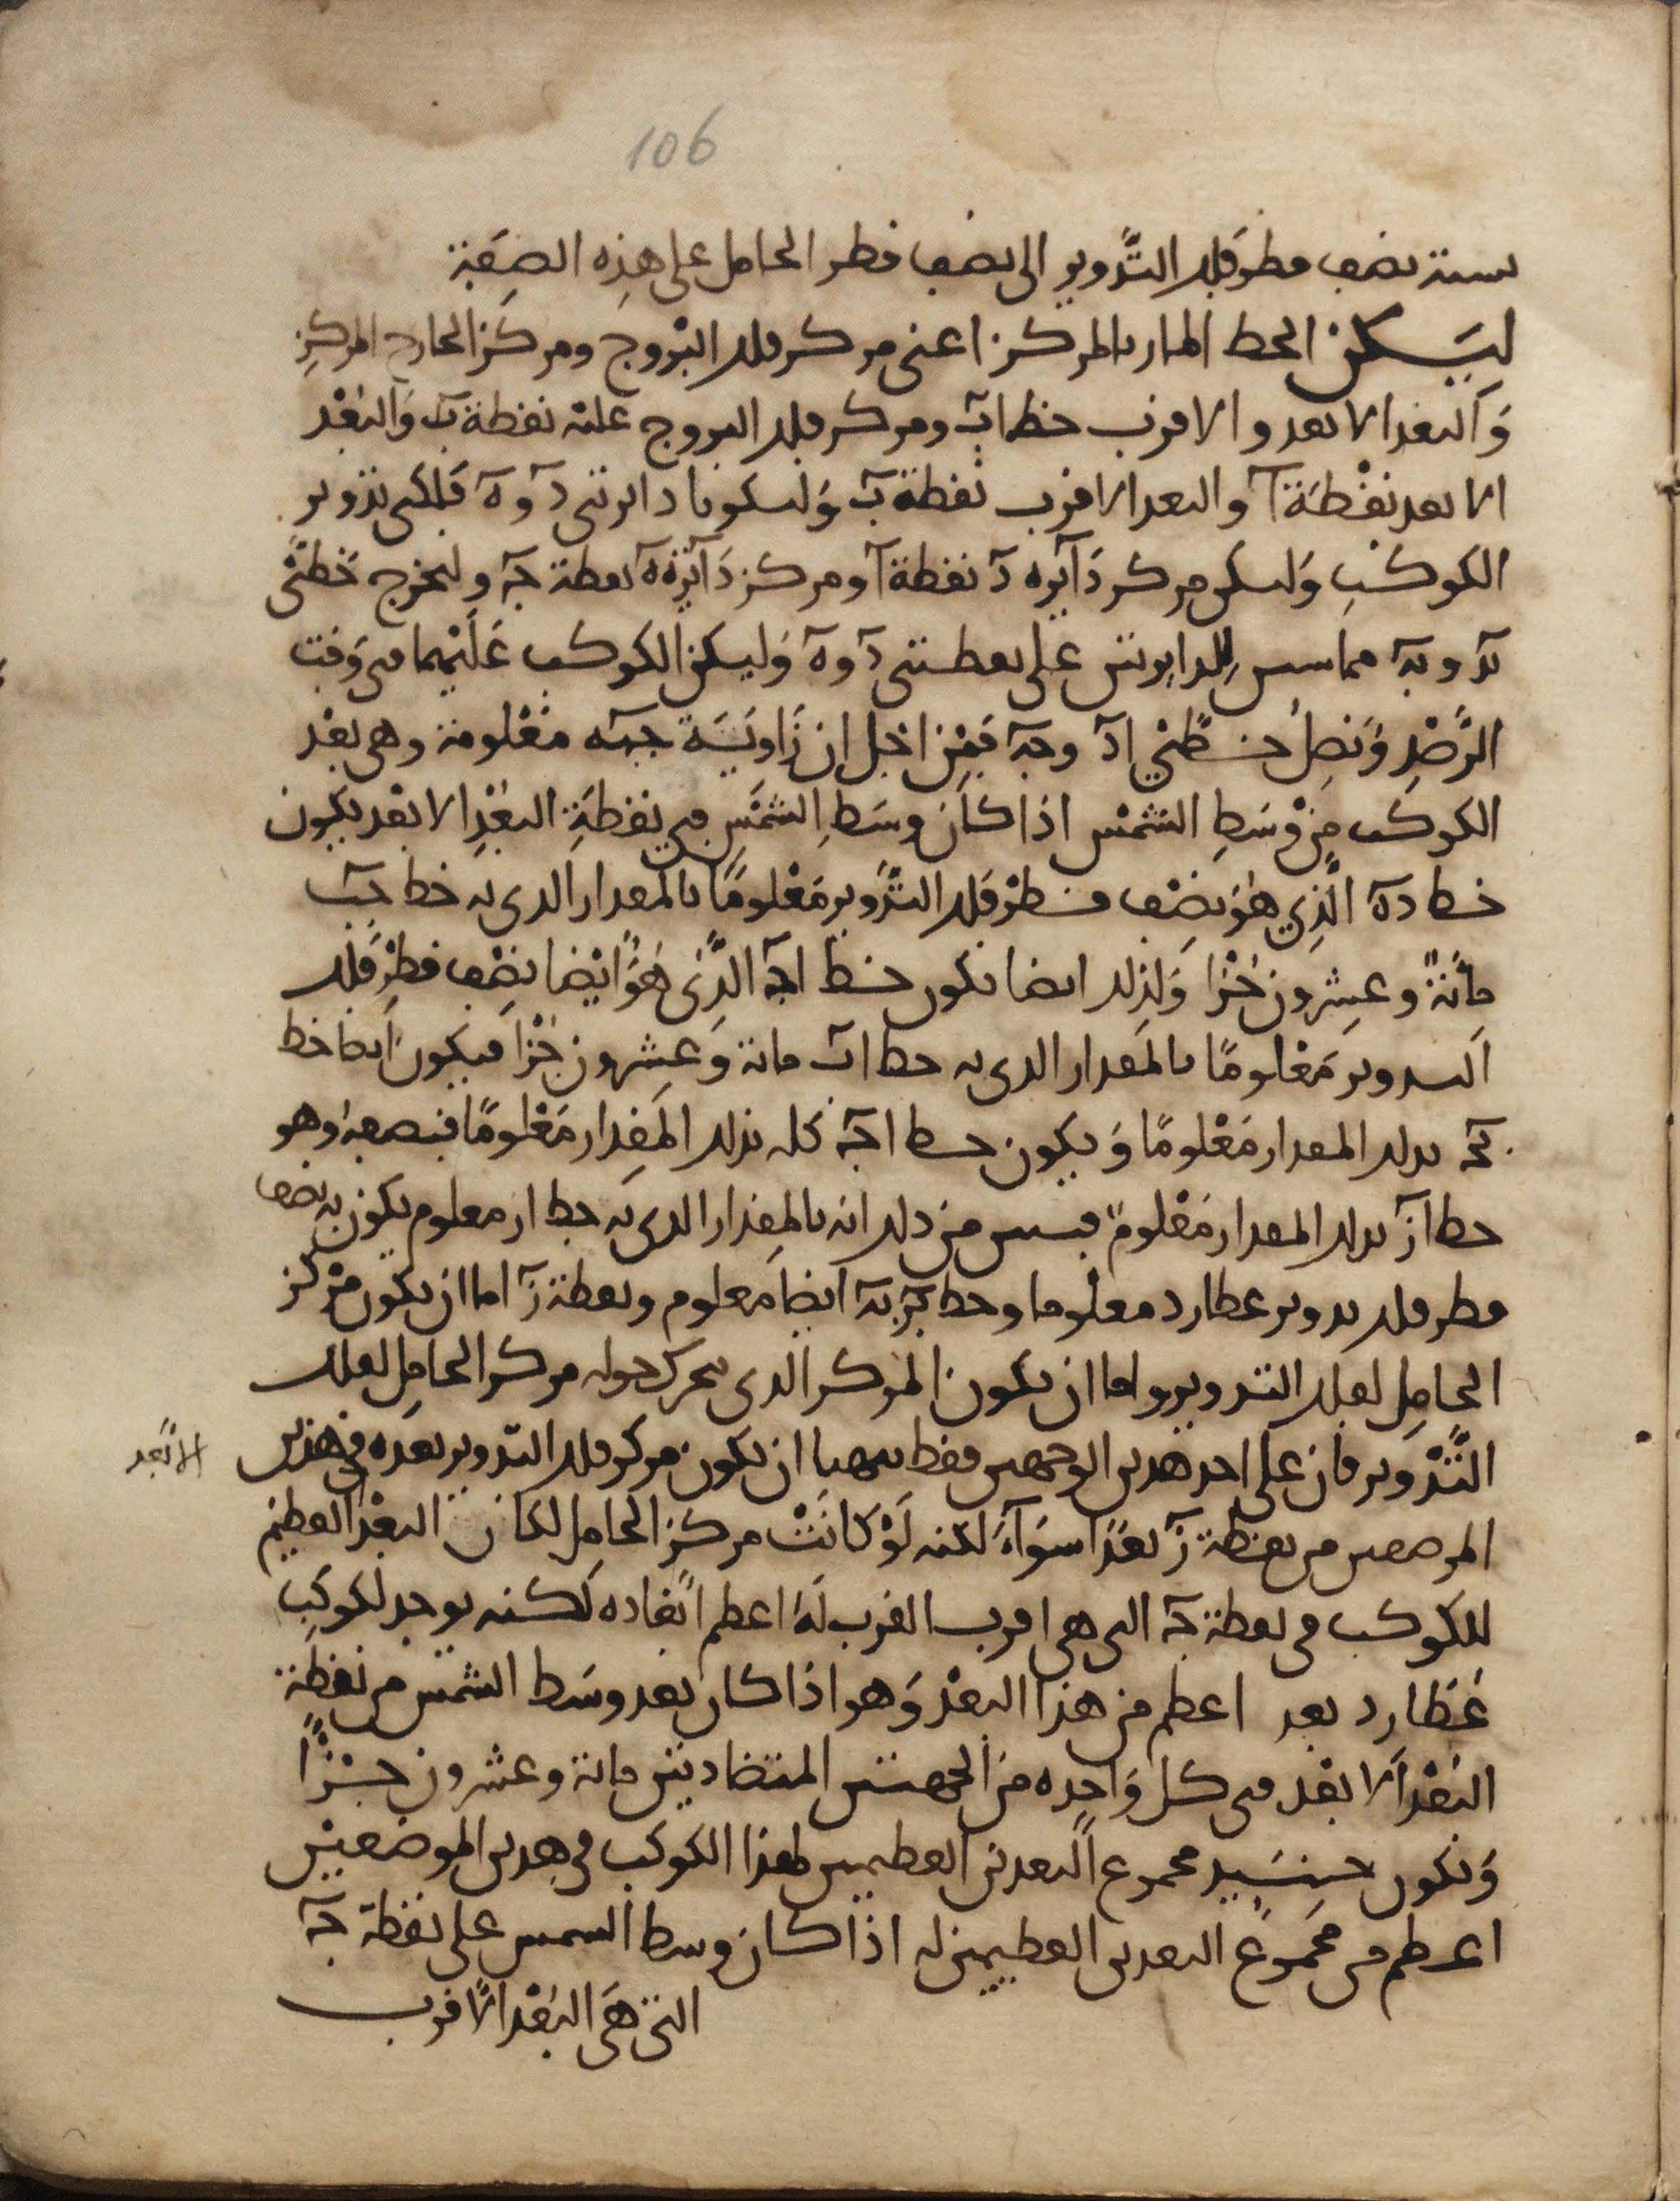 106
نسبة نصف قطر فلك التَّدوير الى نصف قطر الحامل على هذِه الصِفَة
ليَكن الخط المار بالمركز اعنى مركز فلك البُروج ومركز الخارج المركزِ
وَالبعد الابعد والاقرب خط اب ومركز فلك البروج عليْه نقطة ب وَالبُعْد
الابعد نقْطَة ا والبعد الاقرب نقطة ب وَليكونا دائرتى د و ه فلكى تدوير
الكوكبِ وَليكن مركز دَايره د نقطة ا ومركز دَائرة ه نقطة ج وليخرج خطَّى
بد و به مماسين للدايرتين على نقطتى د و ه وَليكن الكوكب عَلَيْهما فى وَقت
الرَّصْدِ وَنصِلُ خطَّيْ اد و جه فمِن اجْل ان زَاويَة جبه مَعْلومة وهى بعْد
الكوكب مِن وسَطِ الشمْس اذا كان وسَطِ الشمْسِ فى نقطَةِ البعْدِ الابعد يكون
خط ده الَّذِي هُوَ نصْف قطْر فلك التدْوير مَعْلومًا بالمقدار الذى به خط جب
مائةً وعشرون جُزْا وَلِذلك ايضا يكون خط اج الَّذِى هُوَ ايْضا نصْف قطْرِ فلك
التدوير مَعْلومًا بالمقدار الذى به خط اب مائة وَعشرون جُزْا فيكون ايضا خط
بج بذلك المقدار مَعْلومًا وَيكون خط اج كله بذلك المِقدار مَعْلومًا فنصفه وهو
خط از بذلك المقدار مَعْلومً فيبين من ذلك انه بالمِقدار الذى به خط از معلوم يكون به نصف
قطر فلك تدوير عطارد معلوما وخط بز به ايضا معلوم ونقطة ز اما ان يكون مرْكز
الحامِل لفلك التدوير واما ان يكون المركز الذى يتحرك حوله مركز الحامِل لفلك
التَّدْوير فان على احد هذين الوجهين فقط يتهيا ان يكون مركز فلك التدوير بعده فى هذين
الابعد
الموضعين من نقطة ز بعدًا سوَاءً لكنه لَوْ كانَتْ مركز الحامِل لكان البعْد العظيم
للكوكب فى نقطة ج التى هى اقرب القرب لَهُ اعظم ابعاده لكنه يوجد لكوكبِ
عُطارد بعد اعظم من هذا البعْد وَهو اذا كان بعد وسَط الشمس من نقطةِ
البُعْد الابعْد فى كل وَاحده من الجهتين المتضاديتين مائة وعشرون جُزْاً
وَيكون حينئيد مجموع البعدين العظيمين لهذا الكوكب فى هذين الموضعيْن
اعظم من مجموعِ البعدين العظيمين له اذا كان وسط الشمس على نقطة ج
التى هىَ البُعْد الاقرب